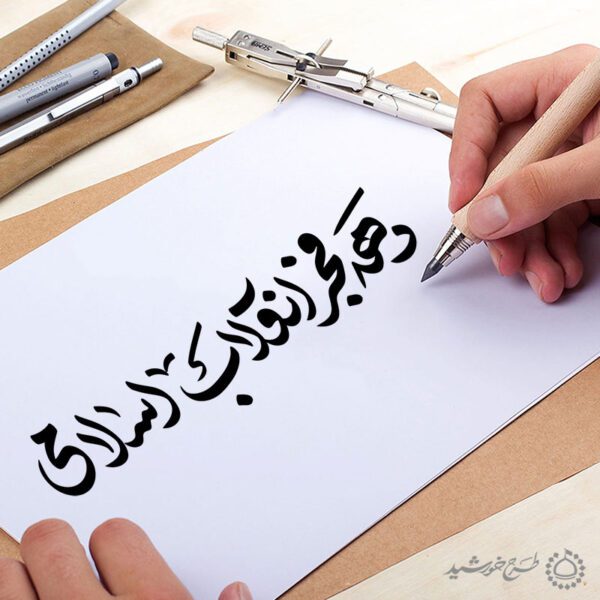 دهه فجر انقلاب اسلامی
طرح خورشید